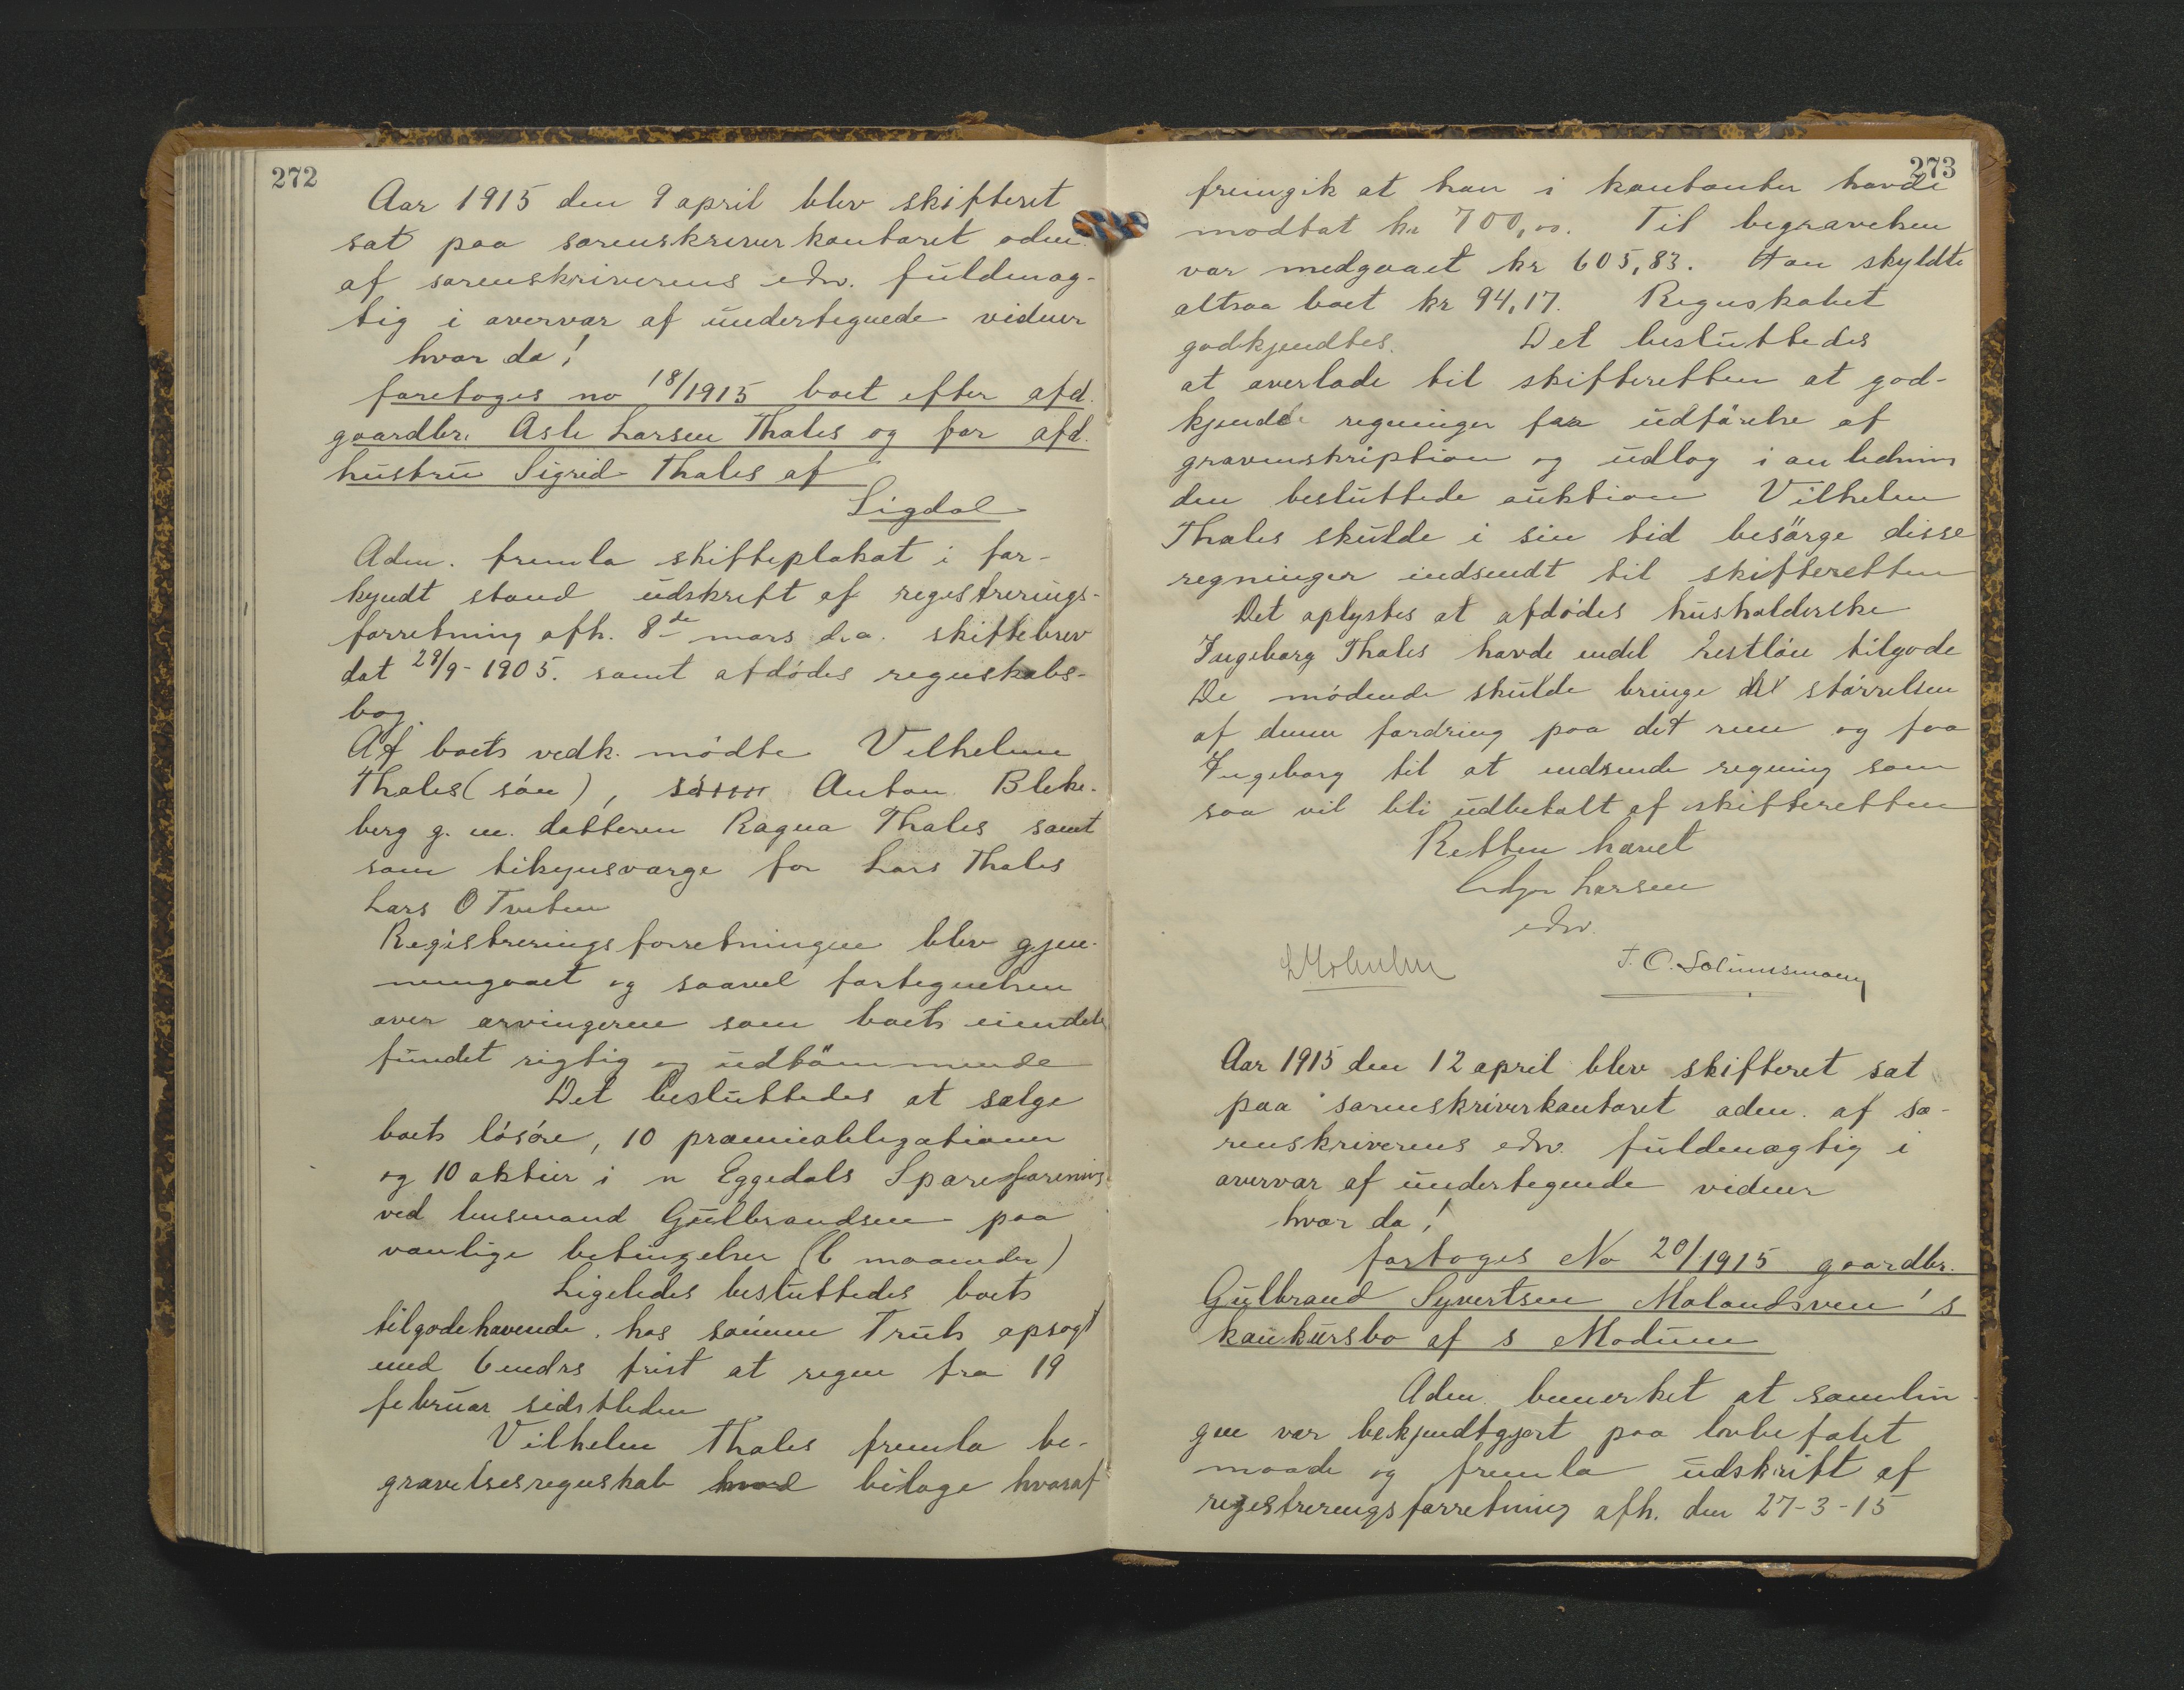 272
Aar 1915 den 9 april blev skifteret
sat paa sorenskriverkontoret adm.
af sorenskriverens edsv. fuldmæg-
tig i overvær af undertegnede vidner
hvor da!
foretoges no 18/1915 boet efter afd.
gaardbr. Asle Larsen Thales og før afd.
hustru Sigrid Thales af
Sigdal
Adm. fremla skifteplakat i for-
kyndt stand udskrift af registrerings-
forretning afh. 8de mars d.a. skiftebrev
dat 28/9-1905. samt afdødes regnskabs-
bog.
Af boets vedk. mødte Vilhelm
Thales (søn), Anton Bleke-
berg g. m. datteren Ragna Thales samt
som tilsynsværge for Lars Thales
Lars O Tveten
Registreringsforretningen blev gjen-
nemgaaet og saavel fortegnelsen
over arvingerne som boets eiendele
fundet rigtig og udtømmende
Det besluttedes at sælge
boets løsøre, 10 præmieobligationer
og 10 aktier i n Eggedals Spareforening
ved lensmand Gulbrandsen paa
vanlige betingelser (6 maaneder)
Ligeledes besluttedes boets
tilgodehavende hos sønnen Truls opsagt
med 6 mdrs frist at regne fra 19
februar sidstleden
Vilhelm Thales fremla be-
gravelsesregnskab hvad bilage hvoraf
273
fremgik at han i kontanter havde
modtat kr 700,00. Til begravelsen
var medgaaet kr 605,83. Han skyldte
altsaa boet kr 94,17. Regnskabet
godkjendtes. Det besluttedes
at overlade til skifteretten at god-
kjende regninger for udførelse af
gravinskription og udlæg i anledning
den besluttede auktion Vilhelm
Thales skulde i sin tid besørge disse
regninger indsendt til skifteretten
Det oplystes at afdødes husholderske
Ingeborg Thales havde endel restløn tilgode
De mødende skulde bringe størrelsen
af denne fordring paa det rene og faa
Ingeborg til at indsende regning som
saa vil bli udbetalt af skifteretten
Retten hævet
Larsen
edsv.
Aar 1915 den 12 april blev skifteret sat
paa sorenskriverkontoret adm. af so-
renskriverens edsv. fuldmægtig i
overvær af undertegnede vidner
hvor da!
foretoges No 20/1915 gaardbr.
Gulbrand Syvertsen Molandsveen's
konkursbo af s Modum
Adm. bemerket at samlin-
gen var bekjendtgjort paa lovbefalet
maade og fremla udskrift af
registreringsforretning afh. den 27-3-15